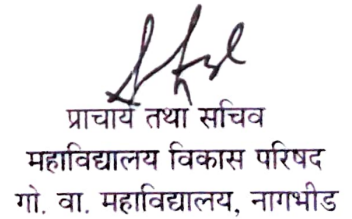 प्राचार्य तथा सचिव
महाविद्यालय विकास परिषद
गो. वा. महाविद्यालय, नागभीड